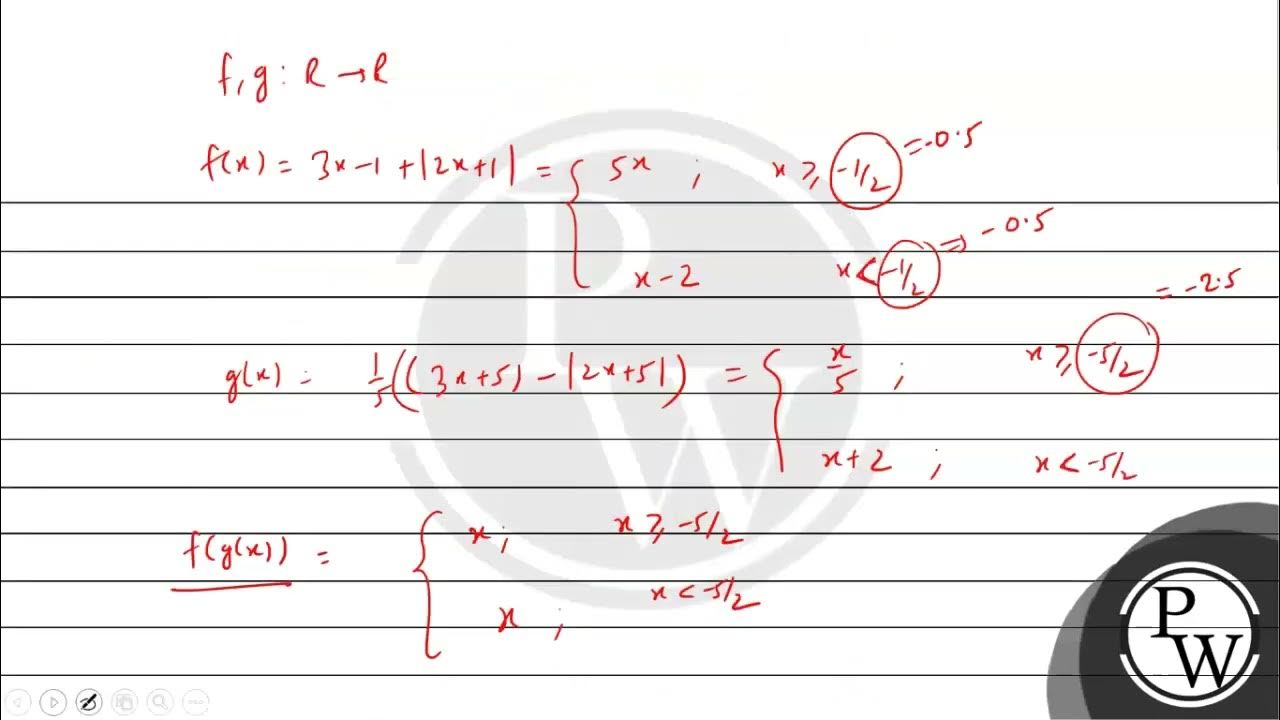 f, g : R → R
f(x) = 3x-1 + |2x+1| = { 5x ; x ≥ -1/2 = -0.5
x-2 x < -1/2 ⇒ -0.5
g(x) = 1/5 ((3x+5) - |2x+5|) = { x/5 ; x ≥ -5/2 = -2.5
x+2 ; x < -5/2
f(g(x)) = { x ; x ≥ -5/2
x ; x < -5/2
PW
PW